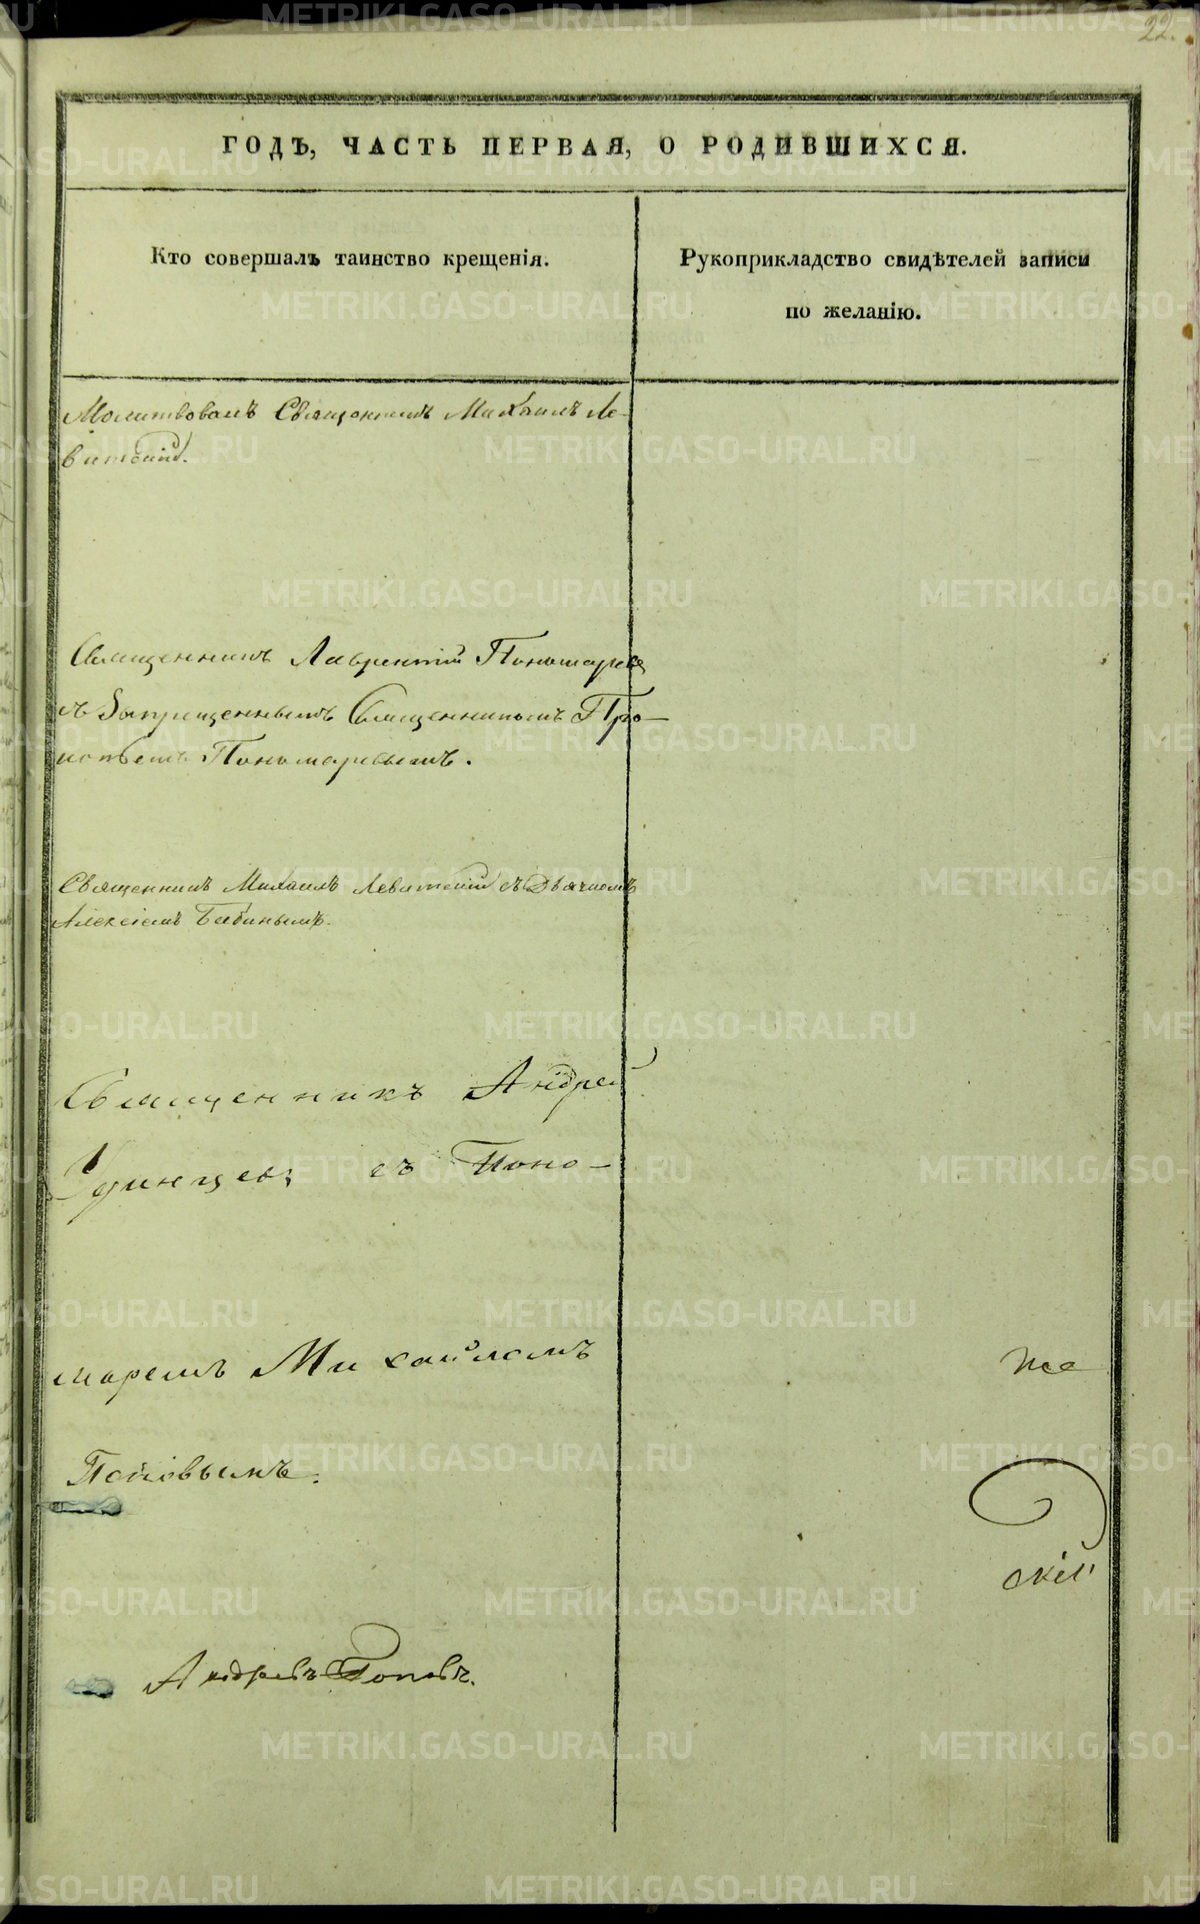 22.
ГОДЪ, ЧАСТЬ ПЕРВАЯ, О РОДИВШИХСЯ.
Кто совершалъ таинство крещенія.
Рукоприкладство свидѣтелей записи
по желанію.
Молитвовалъ Священникъ Михаилъ Ле-
витскій.
Священникъ Лаврентій Пономаревъ
съ Запрещеннымъ Священникомъ Про-
копіемъ Пономаревымъ.
Священникъ Михаилъ Левитскій съ Дьячкомъ
Алексіемъ Бабинымъ.
Священникъ Андрей
Удинцевъ съ Поно-
маремъ Михаиломъ
же
Поповымъ.
скій
Андрей Поповъ.
METRIKI.GASO-URAL.RU